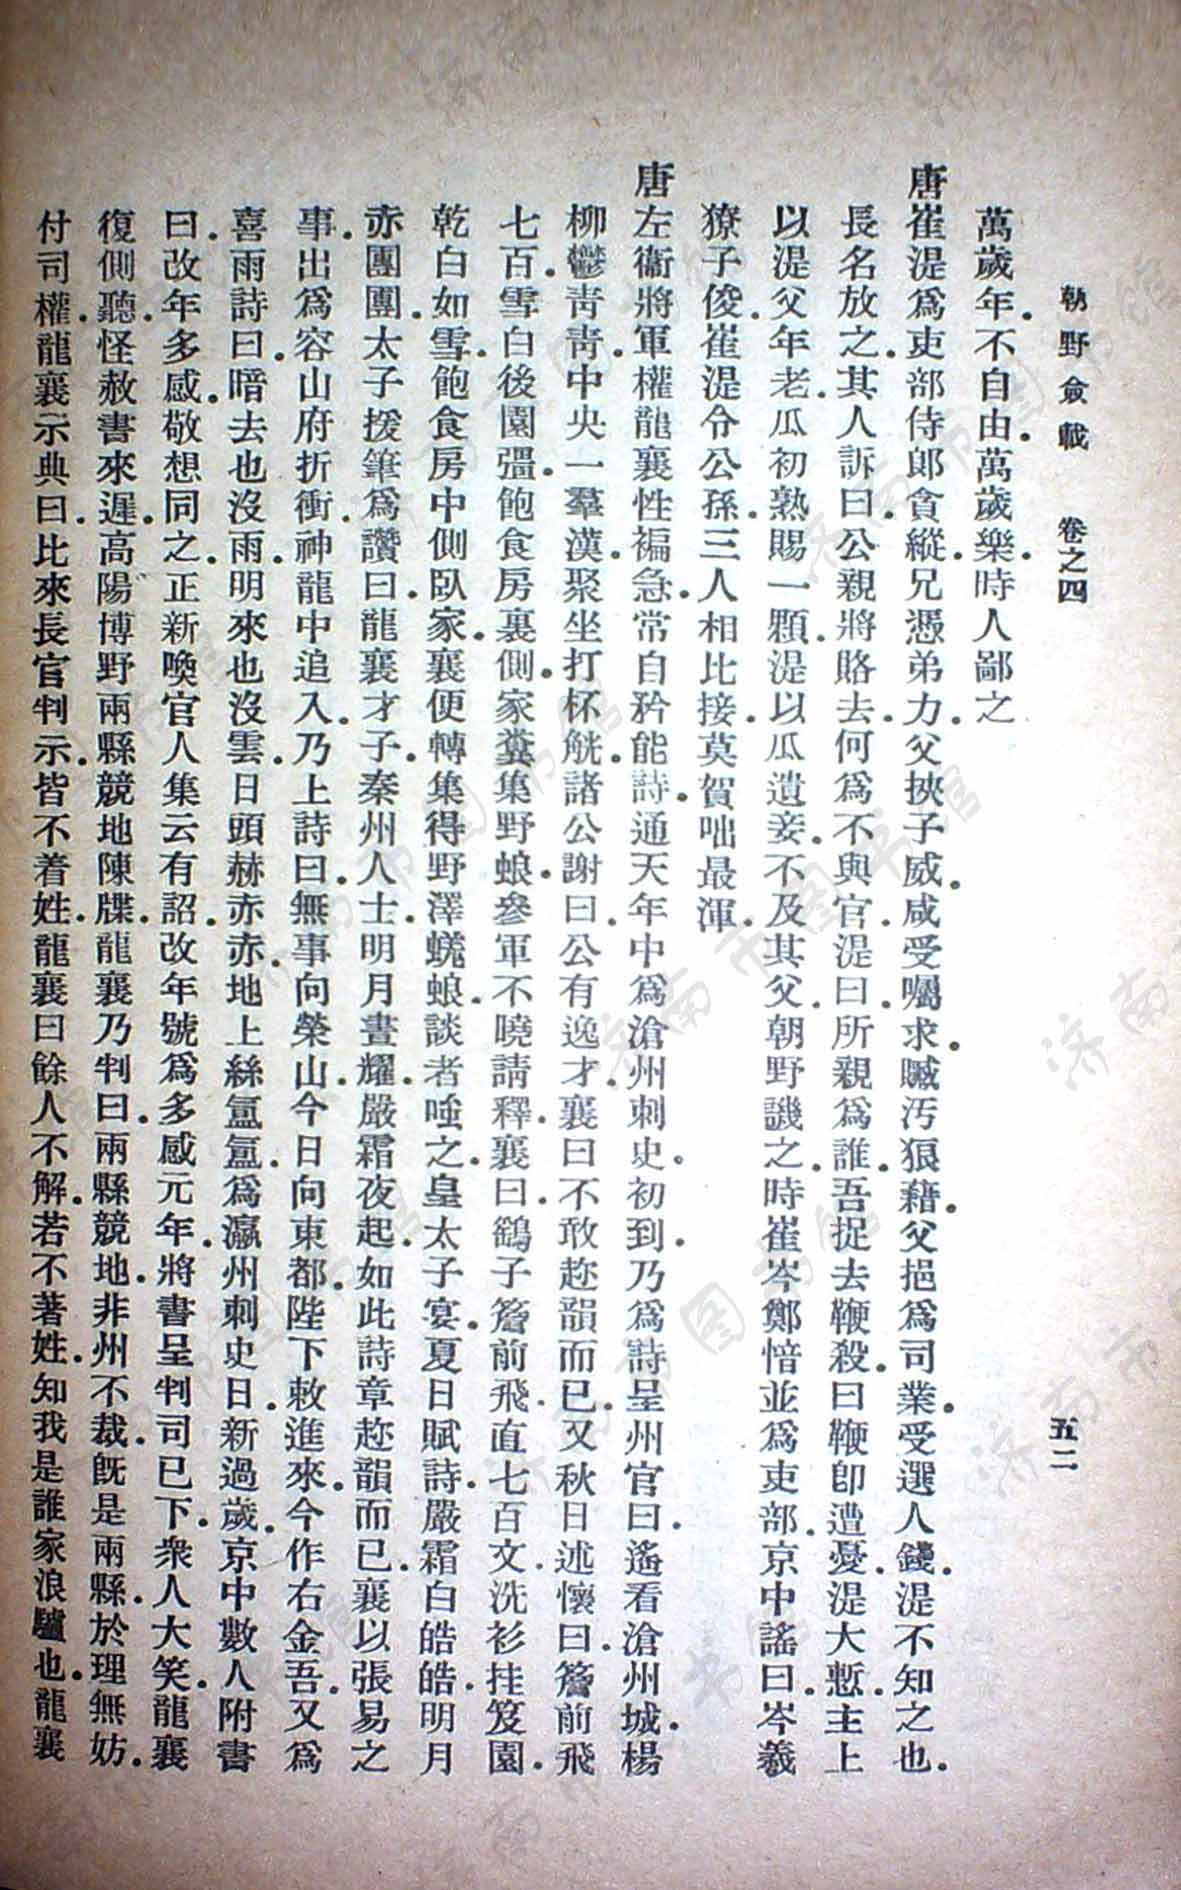 朝野僉載　卷之四　五二
萬歲年不自由萬歲樂時人鄙之
唐崔湜爲吏部侍郞貪縱兄憑弟力父挾子威咸受囑求贓汚狼藉父挹爲司業受選人錢湜不知之也
長名放之其人訴曰公親將賂去何爲不與官湜曰所親爲誰吾捉去鞭殺曰鞭卽遭憂湜大慙主上
以湜父年老瓜初熟賜一顆湜以瓜遺妾不及其父朝野譏之時崔岑鄭愔並爲吏部京中謠曰岑羲
獠子後崔湜令公孫三人相比接莫賀咄最渾
唐左衞將軍權龍襄性褊急常自矜能詩通天年中爲滄州刺史初到乃爲詩呈州官曰遙看滄州城楊
柳鬱靑靑中央一羣漢聚坐打杯觥諸公謝曰公有逸才襄曰不敢趂韻而已又秋日述懷曰簷前飛
七百雪白後園彊飽食房裏側家糞集野蜋參軍不曉請釋襄曰鷂子簷前飛直七百文洗衫挂後園
乾白如雪飽食房中側臥家襄便轉集得野澤蜣蜋談者嗤之皇太子宴夏日賦詩嚴霜白皓皓明月
赤團團太子援筆爲讚曰龍襄才子秦州人士明月晝耀嚴霜夜起如此詩章趂韻而已襄以張易之
事出爲容山府折衝神龍中追入乃上詩曰無事向榮山今日向東都陛下敕進來今作右金吾又爲
喜雨詩曰暗去也沒雨明來也沒雲日頭赫赤赤地上絲氳氳爲瀛州刺史日新過歲京中數人附書
曰改年多感敬想同之正新喚官人集云有詔改年號爲多感元年將書呈判司已下衆人大笑龍襄
復側聽怪赦書來遲高陽博野兩縣競地陳牒龍襄乃判曰兩縣競地非州不裁旣是兩縣於理無妨
付司權龍襄示典曰比來長官判示皆不着姓龍襄曰餘人不解若不著姓知我是誰家浪驢也龍襄